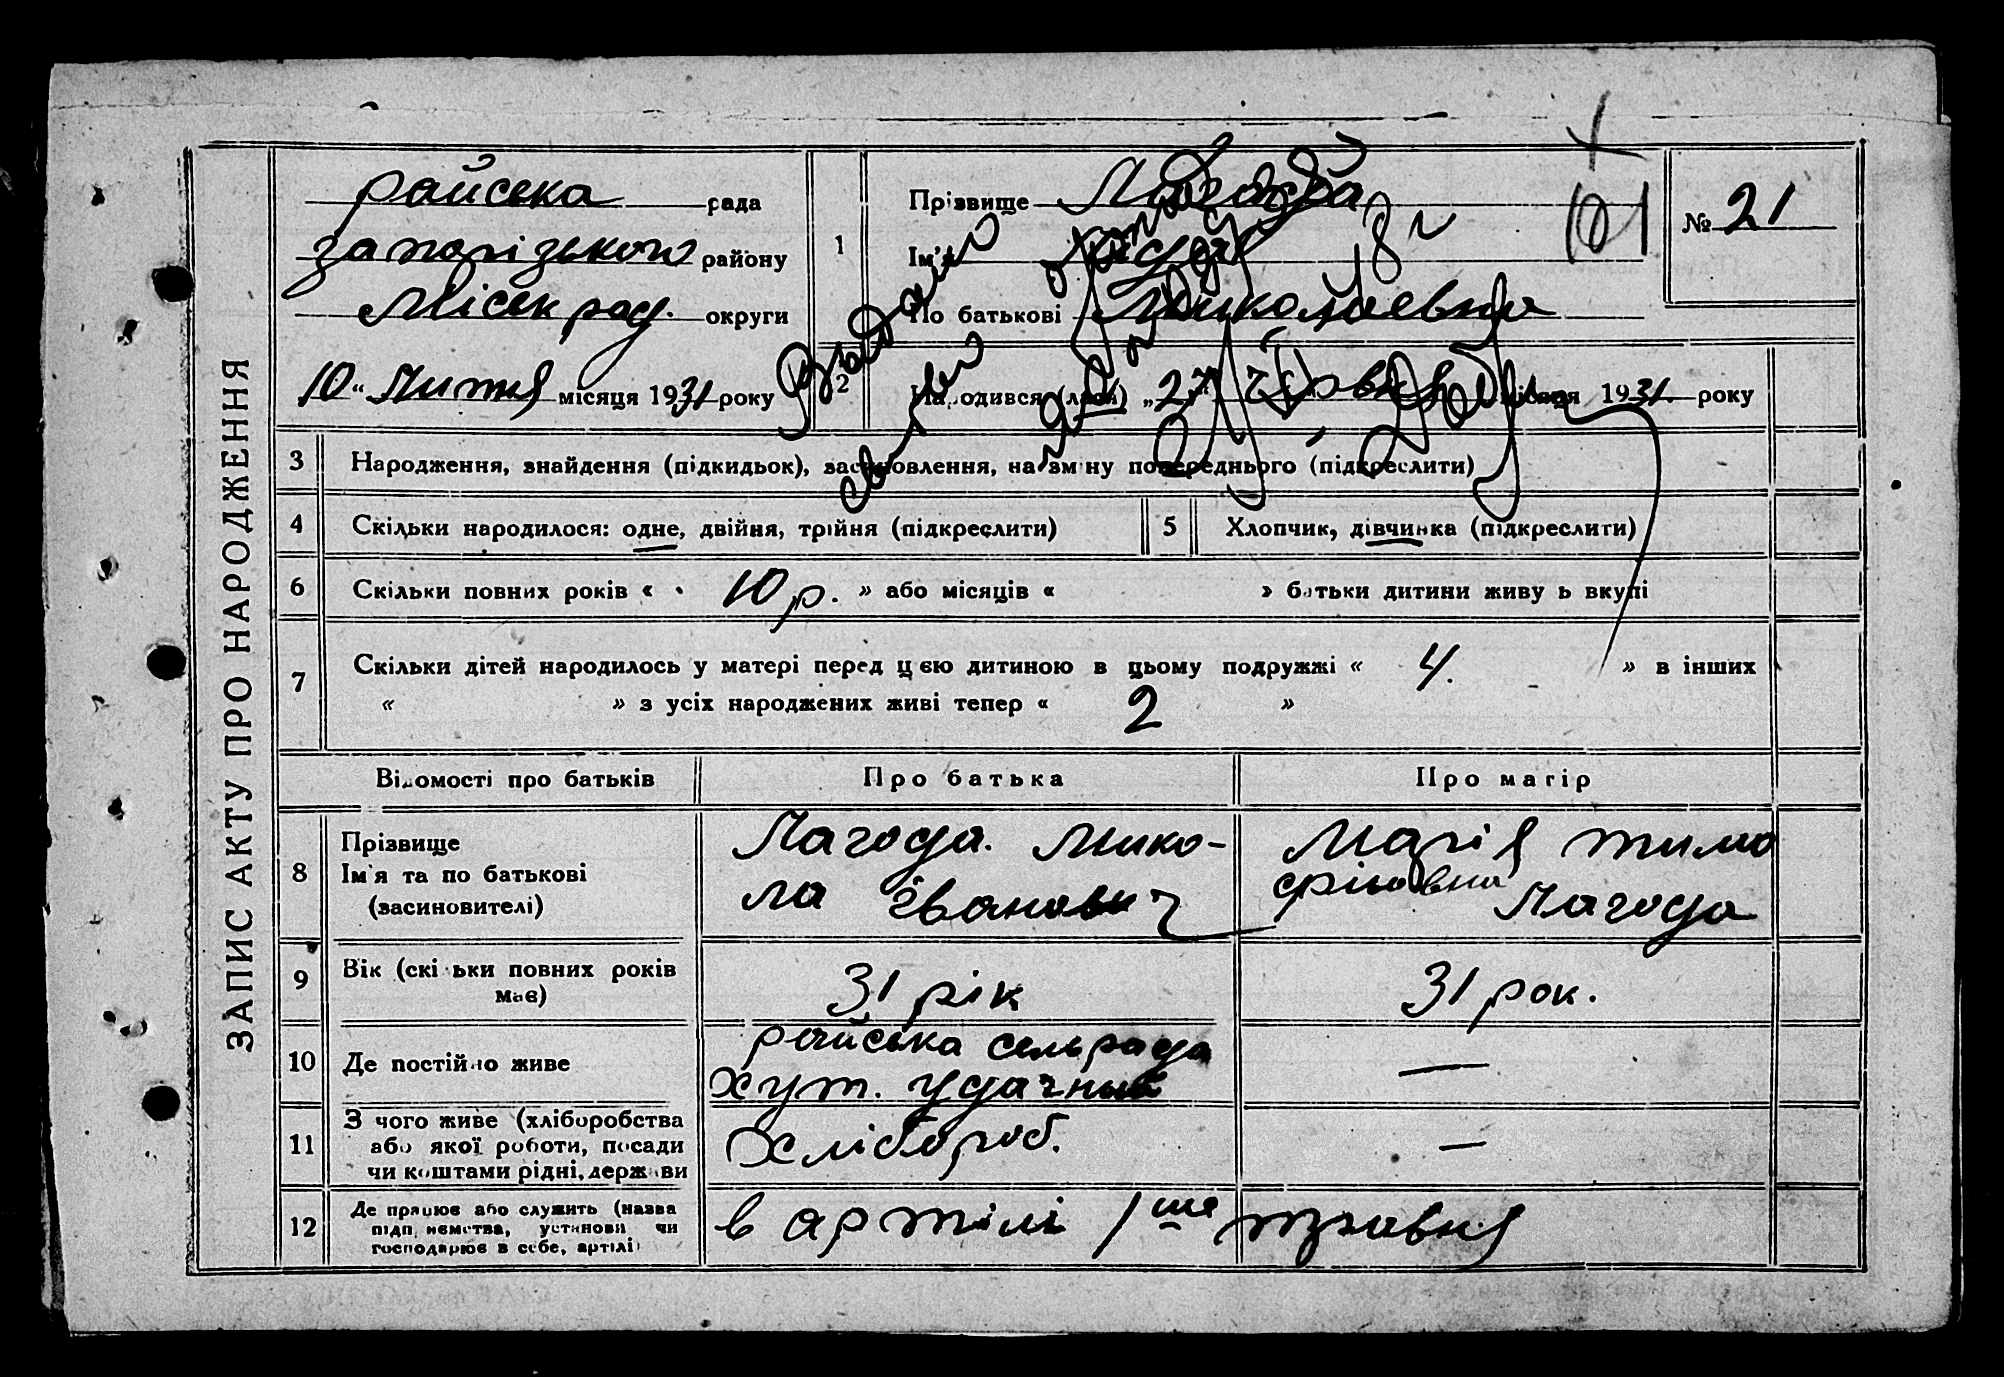 ЗАПИС АКТУ ПРО НАРОДЖЕННЯ
райська рада
запорізького району
Міськ рад. округи
10 " Липня місяця 1931 року
№ 21
1
Прізвище Лагода
Ім'я
По батькові Миколаевна
2
Народився (лася) „27" Червня місяця 1931. року
3 Народження, знайдення (підкидьок), засиновлення, на зміну попереднього (підкреслити)
4 Скільки народилося: одне, двійня, трійня (підкреслити)
5 Хлопчик, дівчинка (підкреслити)
6 Скільки повних років « 10 р. » або місяців « » батьки дитини живуть вкупі
7 Скільки дітей народилось у матері перед цією дитиною в цьому подружжі « 4. » в інших
« » з усіх народжених живі тепер « 2 »
Відомості про батьків Про батька Про матір
8 Прізвище
Ім'я та по батькові
(засиновителі)
Лагода. Мико-
ла Іванович
Марія тимо
фіївна Лагода
9 Вік (скільки повних років
має)
31 рік
31 рок.
10 Де постійно живе
райська сельрада
хут. удачний
—
11 З чого живе (хліборобства
або якої роботи, посади
чи коштами рідні, держави
Хлібороб.
—
12 Де працює або служить (назва
підприємства, установи чи
господарює в себе, артілі)
в артілі 1ше травня